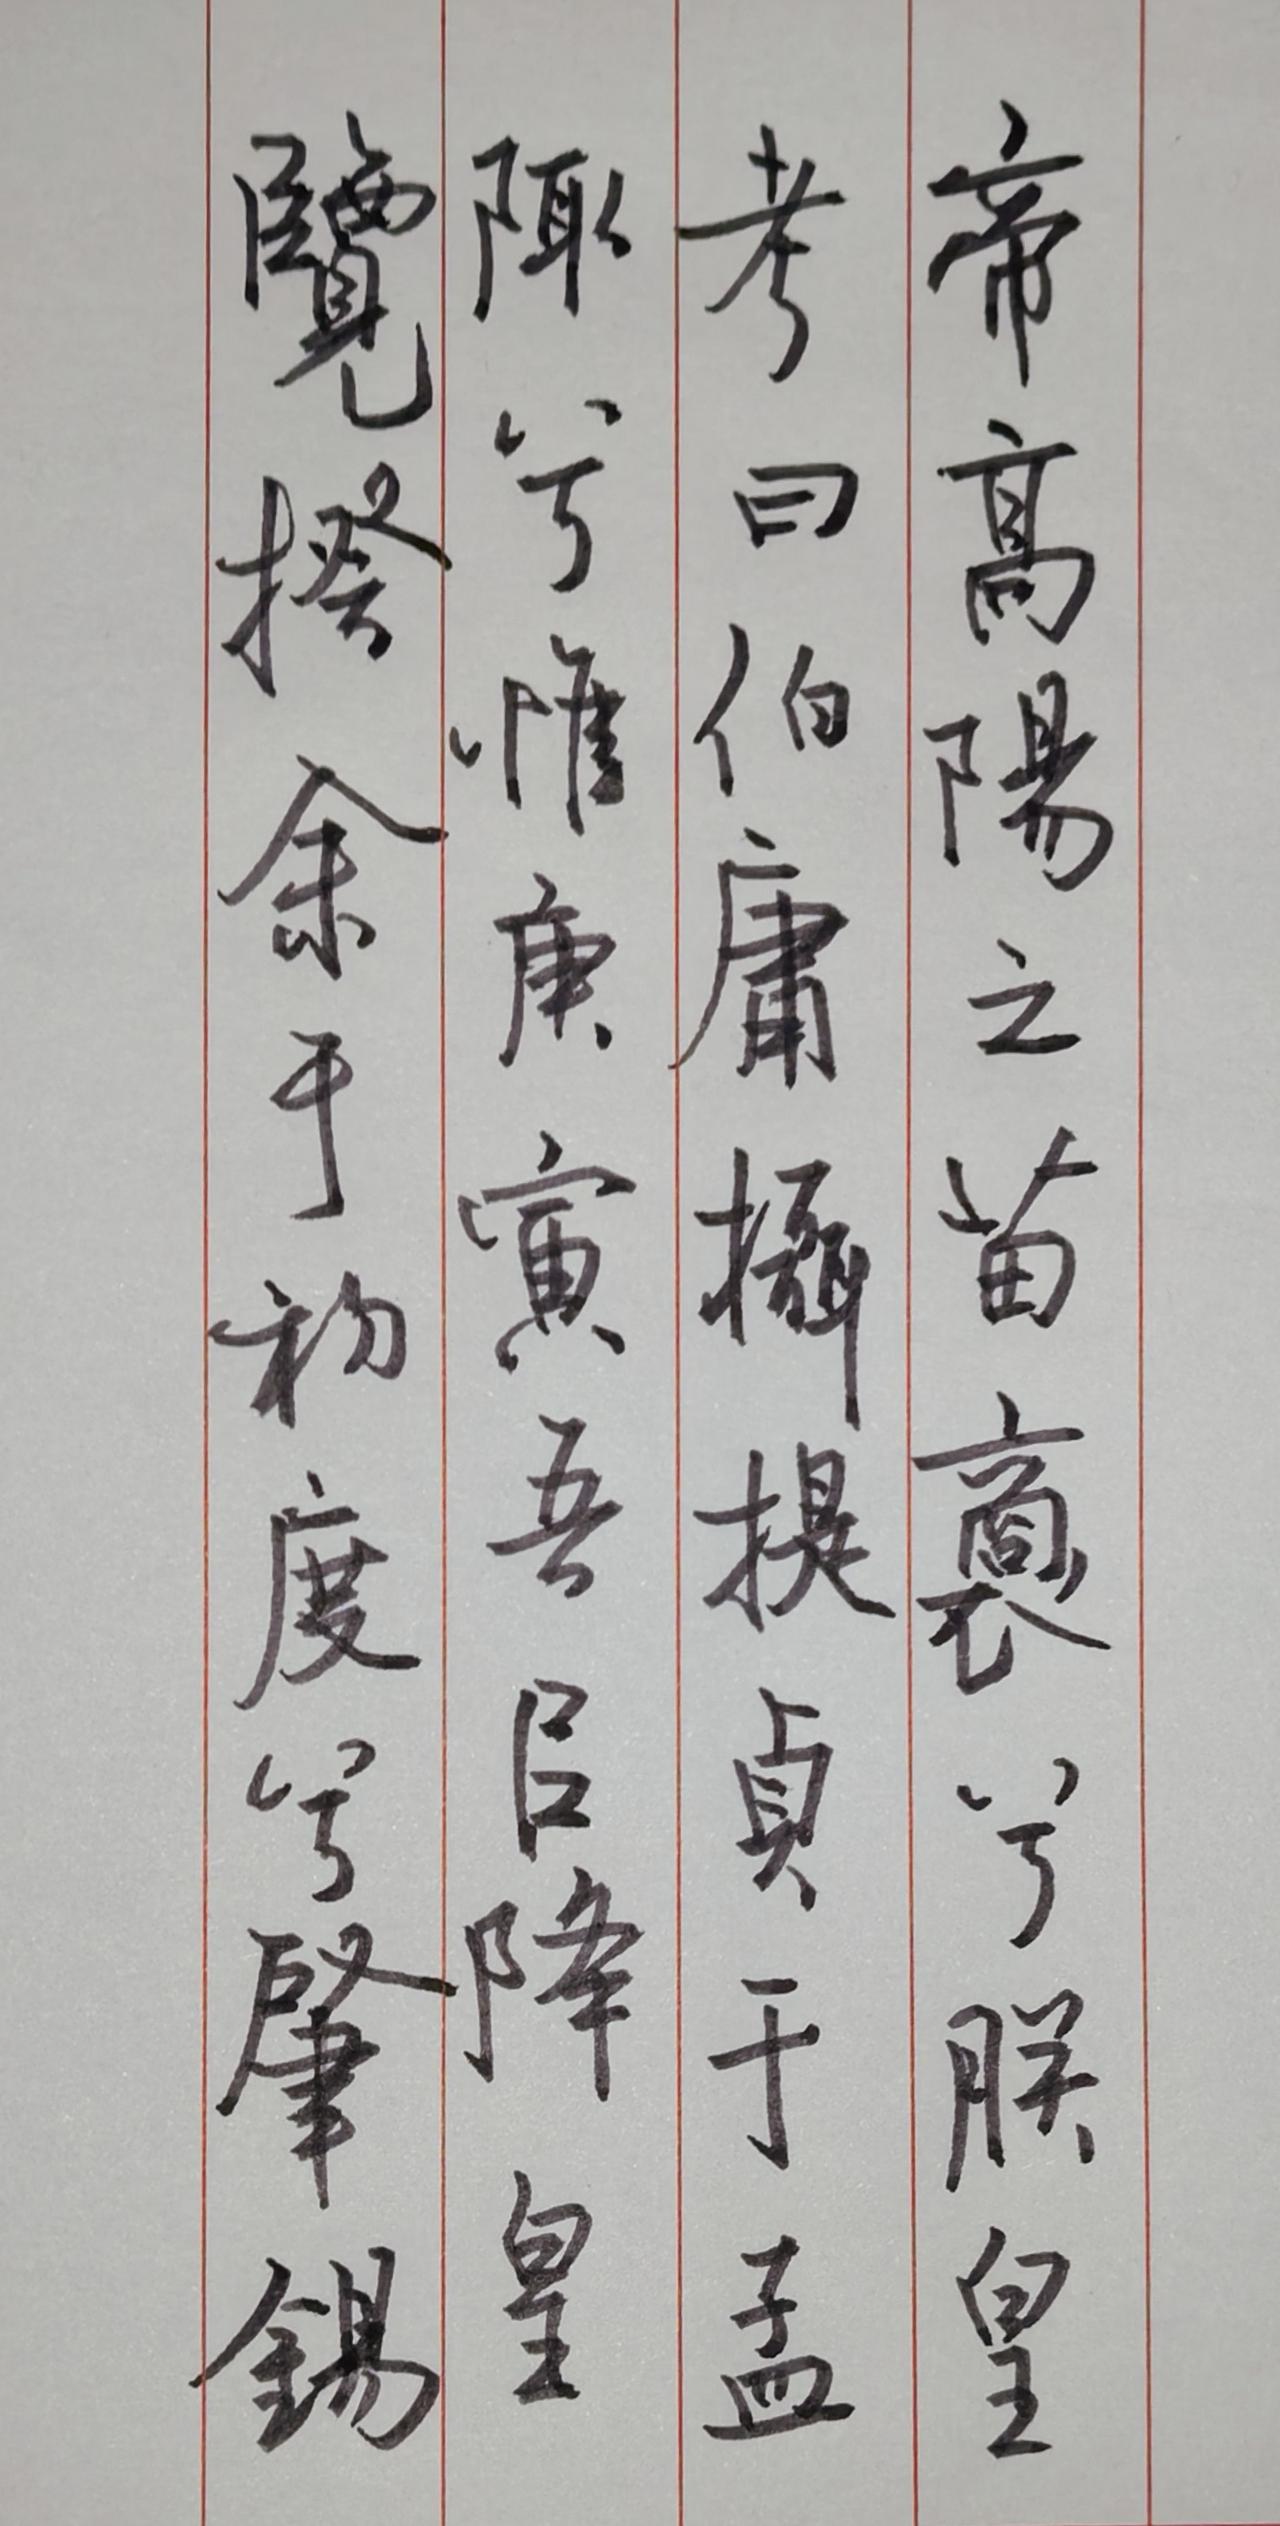 帝高陽之苗裔兮朕皇
考曰伯庸攝提貞于孟
陬兮惟庚寅吾㠯降皇
覽揆余于初度兮肇錫